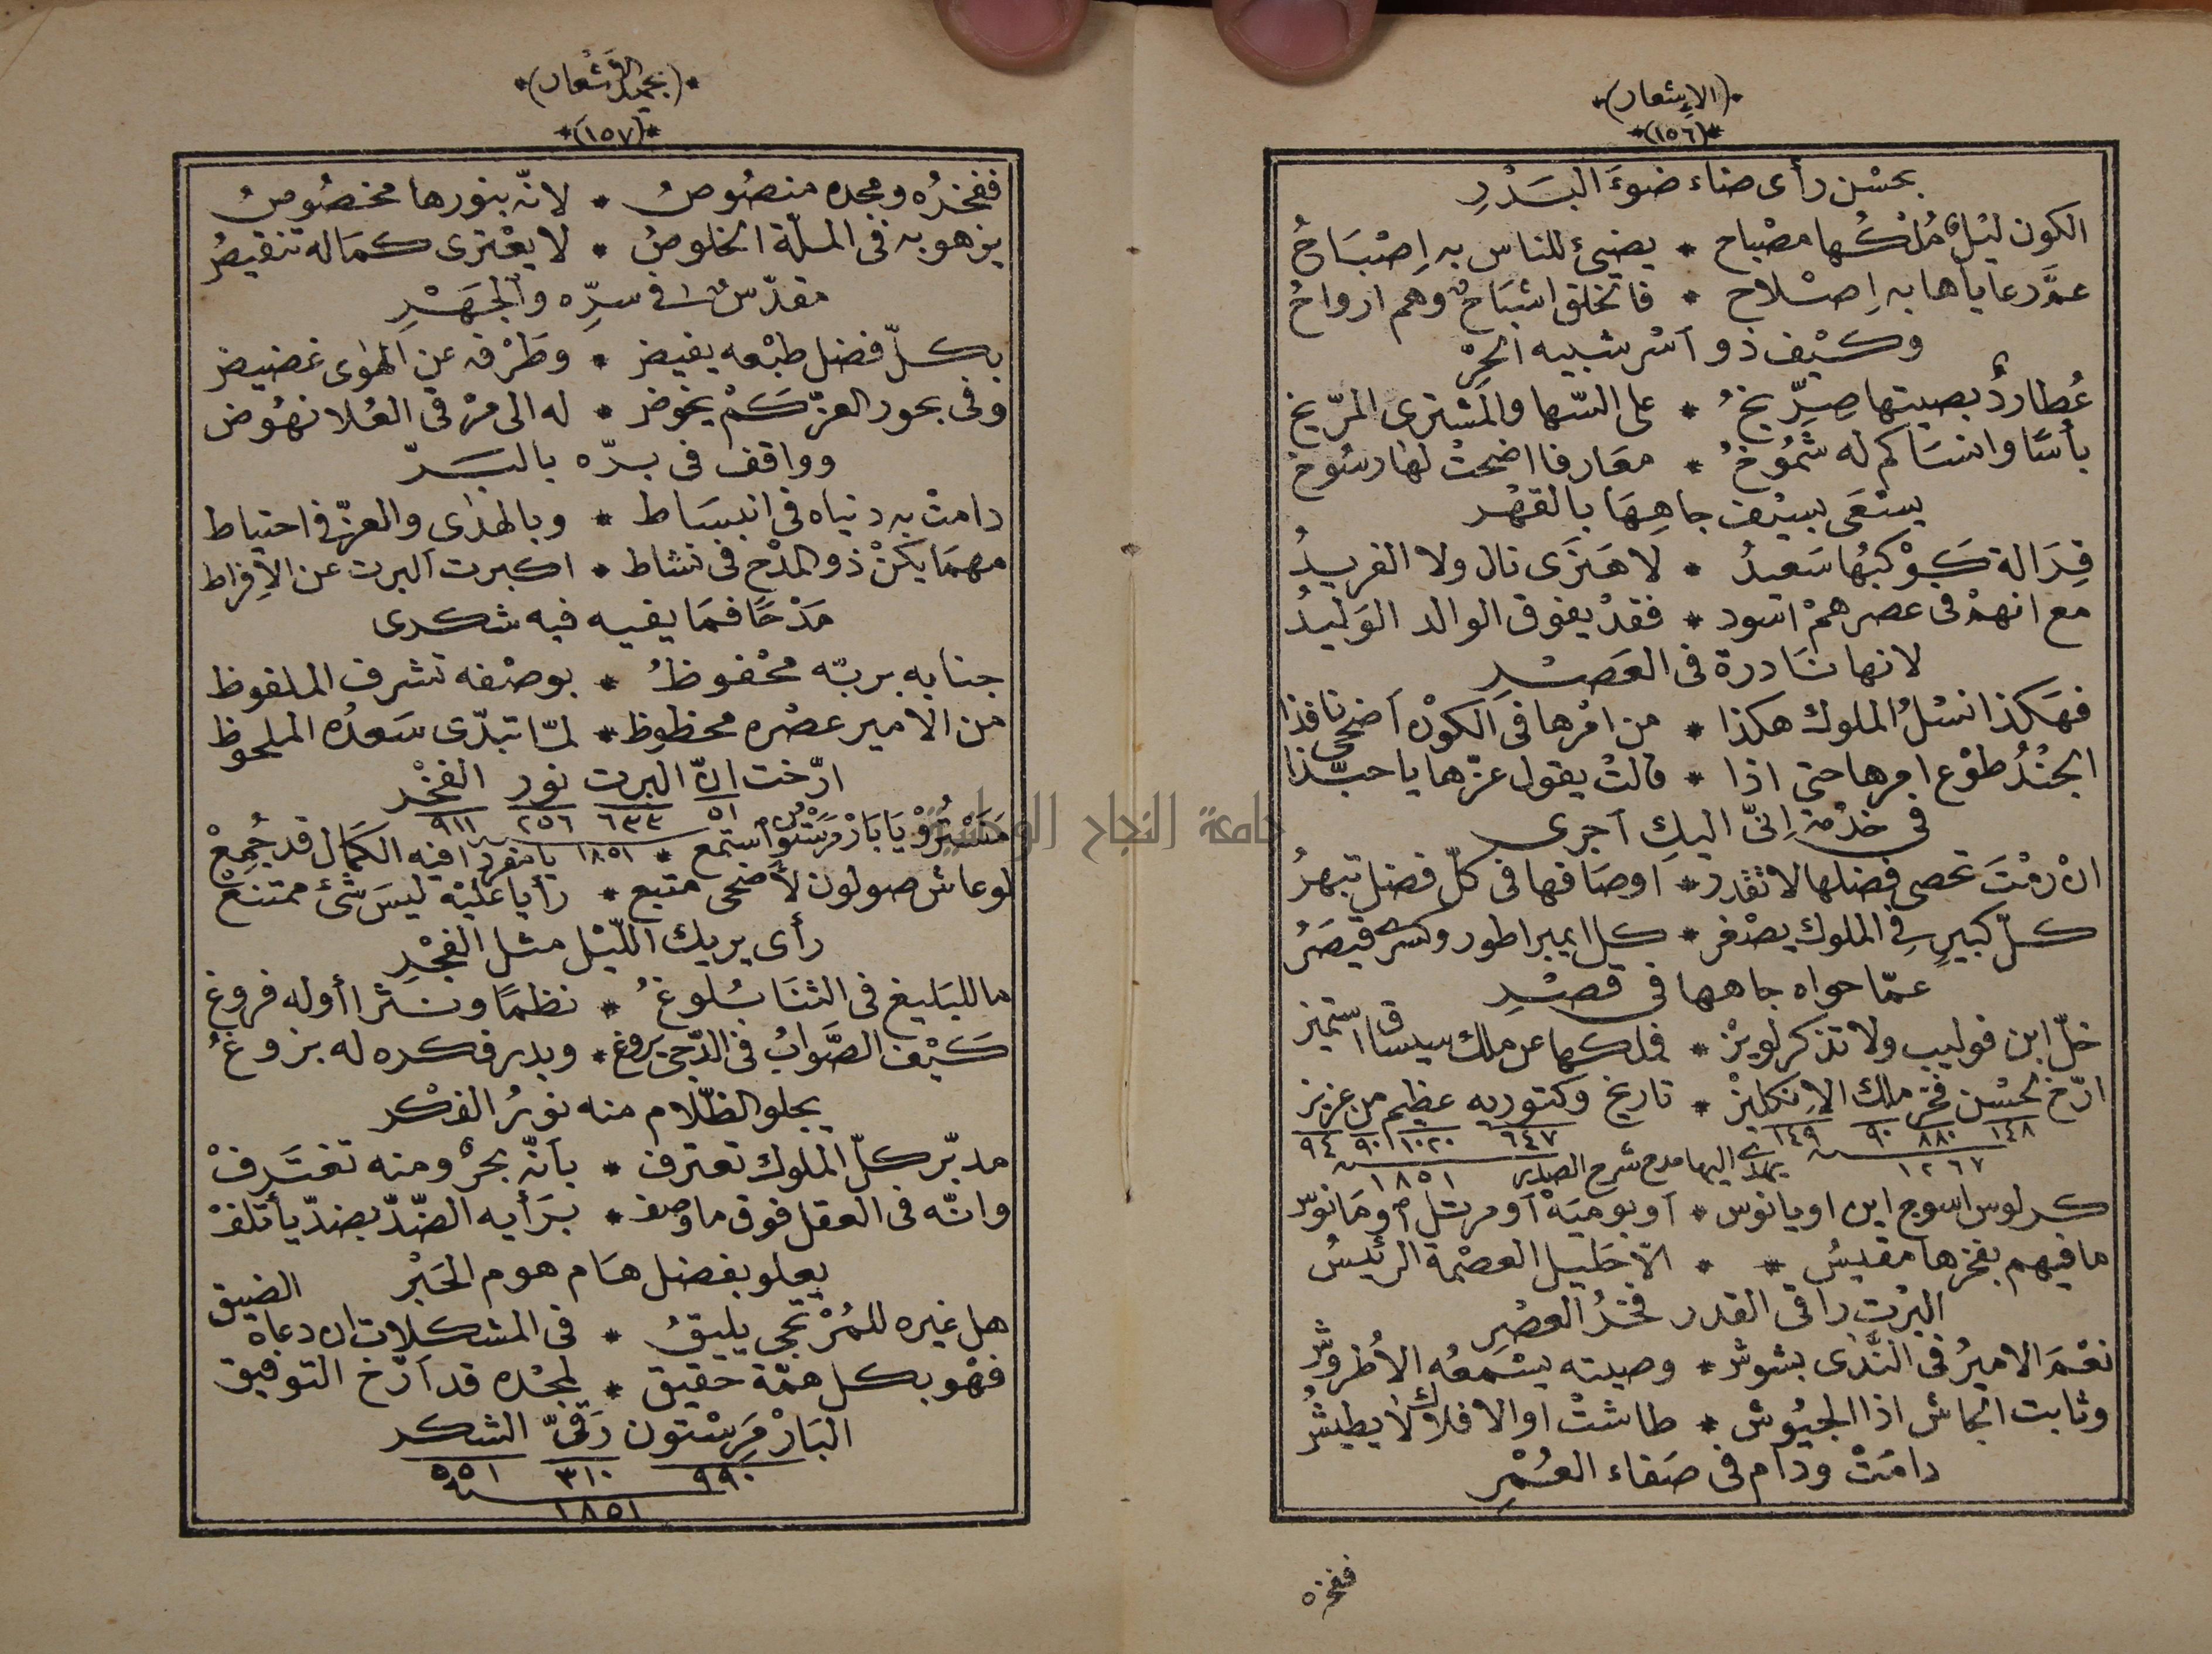 *(الإشعار)*
*(١٥٦)*
بحسْن رأى ضاء ضوءَ البَدْرِ
الكون ليْلٌ مُلْكُها مصْباح * يضيئ للناس به اِصْبَاحُ
عمَّ رعاياها به اِصْلاح * فاتخلق اشبَاحٌ وهم ارواحُ
وكيْف ذو اَسْر شبيه الحُرِّ
عُطاردٌ بصيتها صِرّيخُ * على السّها والمشترى المرّيخ
بأسًا وانسَاكم له شُمُوخُ * معَارفا اضحتْ لها رسُوخ
يسْعَى بسيْف جاهِهَا بالقهْر
فِدَالة كَوْكَبُها سَعيدُ * لا هَنرَى نال ولا الفريدُ
مع انهمْ فى عصرهمْ اسود * فقدْ يفوق الوالد الوَليدُ
لانها نادرة فى العَصْرِ
فهَكذا نسْلُ الملوك هكذا * من امْرها فى الكوْن اَضحى نافذا
الجنْدُ طوْع امرها حتى اذا * قالتْ يقول عزّها يا حبّذا
فى خدْمة اِنّى اليكِ آجرى
انْ رمْتَ تحصى فضلها لا تقْدر * اَوصَافها فى كلّ فضل تبهرُ
كلّ كبيرٍ فى الملوك يصْغر * كل ايمبراطور وكسْرى قيصَرُ
عمّا حواه جاهها فى قصْرِ
خلّ ابن فوليب ولا تذكر لويْز * فملكها عن ملك سيساق استميز
ارّخ بحسْن فخْر ملك الاِنكليْز * تاريخ وكتوريه عظيم من عزيز
١٤٨ ٨٨٠ ٩٠ ١٤٩ ٦٤٧ ١٠٢٠ ٩٠ ٩٤
١٢٦٧ يهدى اليها مدح شرح الصدر ١٨٥١
كرلوس اسوج ابن اويانوس * اَو بوميَهْ اَو مرتل اَو مَانوس
ما فيهم بفخرها مقيسُ * * الاّ جَليل العصْمة الرئيسُ
البرْت راقى القدر فخرُ العصْرِ
نعْمَ الاميرُ فى النّدى بشوش * وصيته يسْمعُه الاُطروش
وثابت الجاش اذا الجيُوش * طاشتْ او الافلاك لا يطيشُ
دامَتْ ودام فى صَفاء العُمْرِ
ففخره
*(بجميد الاشعار)*
*(١٥٧)*
ففخرُه ومجده منصُوصُ * لانّه بنورها مخصُوصُ
يزهو به فى الملّة الخلوصُ * لا يعْترى كمَاله تنقيصُ
مقدّس فى سرِّه والجَهْرِ
بكلّ فضل طبْعه يفيض * وطَرْفه عن الهوٰى غضيض
وفى بحور العزّ كَمْ يخوض * له الى مرْقى العُلا نهُوض
وواقف فى برّه بالبَرّ
دامتْ به دنياه فى انبسَاط * وبالهدٰى والعزّ فى احتياط
مهمَا يكنْ ذو المدْح فى نشاط * اكبرت اَلبرت عن الاِفراط
مَدْحًا فمَا يفيه فيه شكرى
جنابه بربّه محْفوظُ * بوصْفه تشرف الملفوظ
من الامير عصْره محظوظ * لمّا تبدّى سَعدُه الملحوظ
ارّخت انّ البرت نور الفخْر
٥١ ٦٣٣ ٢٥٦ ٩١١
مَنَسْتُرُوْ يَا بَادْمَرِسْتُون استمع * ١٨٥١ يا منفردًا فيه الكَمال قد جُمِعْ
لو عاش صولون لاَضحى متبع * رأيا عليْه ليسَ شئ ممتنعْ
رأى يريك اللّيْل مثل الفجْرِ
ما للبَليغ فى الثنَا بُلوغُ * نظمًا ونثرا أوله فروغ
كَيْف الصَّوابُ فى الدّجى يروغ * وبدر فكره له بزوغُ
يجلو الظّلام منه نورُ الفكْر
مدبّر كلّ الملوك تعترف * بأنّه بحرٌ ومنه تغترفْ
وانّه فى العقل فوق ما وصف * برَأيه الضّدّ بضدّ يأتلفْ
يعلو بفضل هَام هوم الحَبْر
هل غيره للمُرْتجى يليقُ * فى المشكلات ان دعاه الضيق
فهْو بكل همّة حقيق * لمجْده قد اَرّخ التوفيق
البَادْمَرِسْتون رَقىّ الشكر
٩٩٠ ٣١٠ ٥٥١
١٨٥١
جامعة النجاح الوطنية